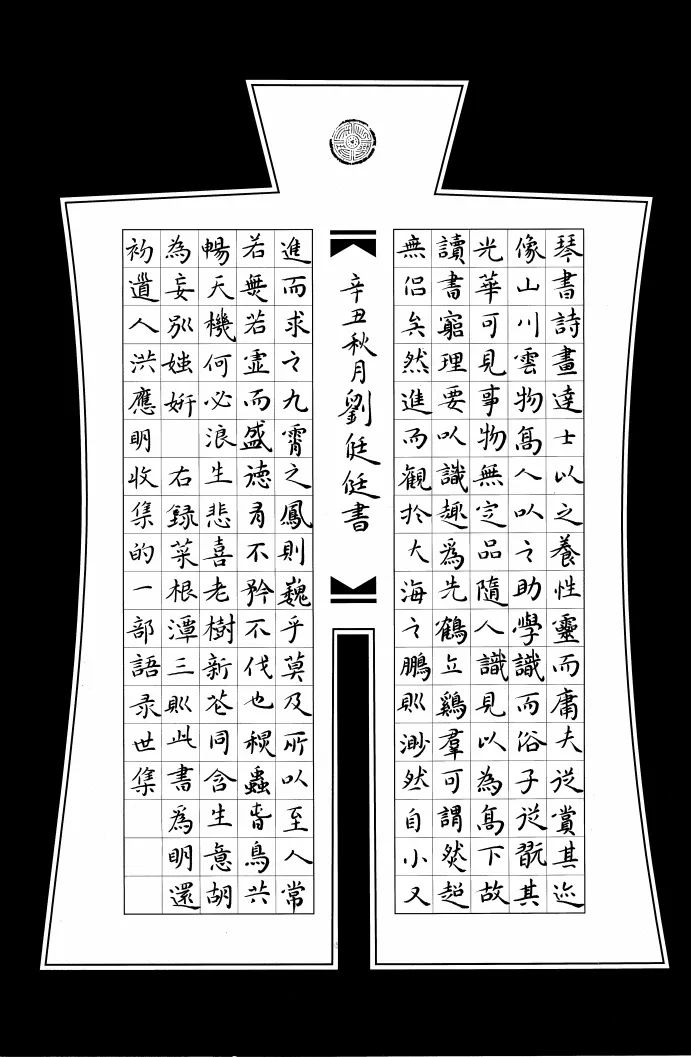 琴書詩畫達士以之養性靈而庸夫從賞其迹
像山川雲物高人以之助學識而俗子從翫其
光華可見事物無定品隨人識見以為高下故
讀書窮理要以識趣爲先鶴立鷄羣可謂然超
無侶矣然進而觀於大海之鵬則渺然自小又
辛丑秋月劉廷廷書
進而求之九霄之鳳則巍乎莫及所以至人常
若無若虛而盛德有不矜不伐也秋蟲春鳥共
暢天機何必浪生悲喜老樹新花同含生意胡
為妄別媸妍 右録菜根潭三則此書爲明還
初道人洪應明收集的一部語录世集